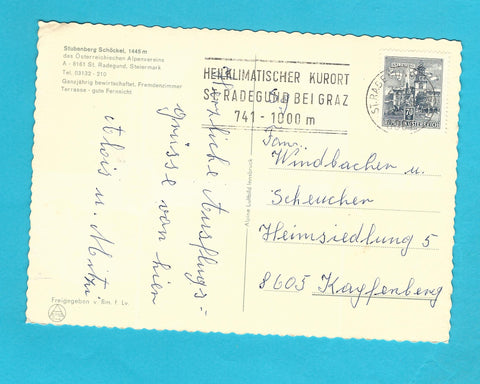 Stubenberg Schöckel, 1445 m
des Österreichischen Alpenvereins
A - 8161 St. Radegund, Steiermark
Tel. 03132 - 210
Ganzjährig bewirtschaftet, Fremdenzimmer
Terrasse - gute Fernsicht
HEILKLIMATISCHER KURORT
ST. RADEGUND BEI GRAZ
741 - 1000 m
ST. RADE
REPUBLIK ÖSTERREICH
Herzliche Ausflugs=
grüsse von hier
Alois u. Mitzi
Fam.
Windbacher u.
Scheucher
Heimsiedlung 5
8605 Kapfenberg
Alpine Luftbild Innsbruck
Freigegeben v. Bm. f. Lv.